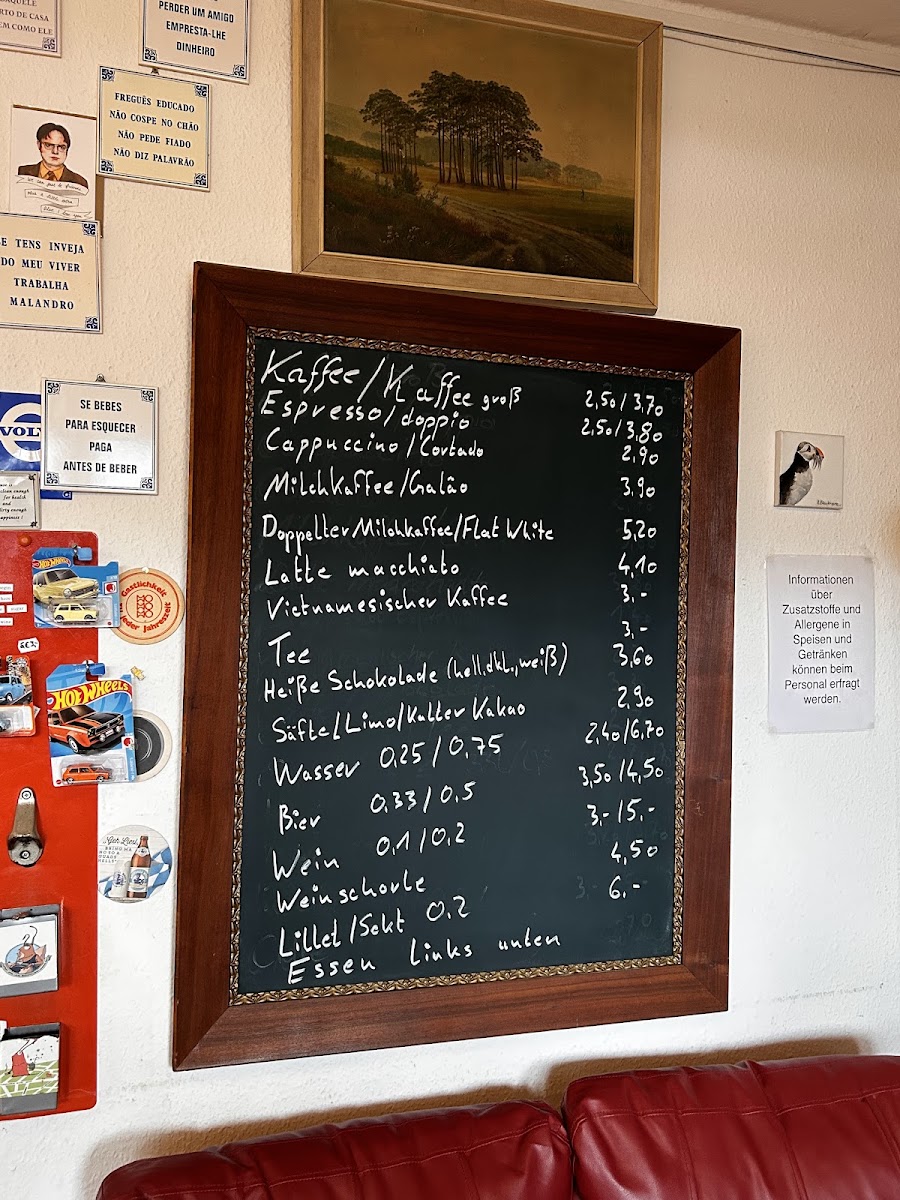 AQUELE
RTO DE CASA
EM COMO ELE
PERDER UM AMIGO
EMPRESTA-LHE
DINHEIRO
FREGUÊS EDUCADO
NÃO COSPE NO CHÃO
NÃO PEDE FIADO
NÃO DIZ PALAVRÃO
E TENS INVEJA
DO MEU VIVER
TRABALHA
MALANDRO
SE BEBES
PARA ESQUECER
PAGA
ANTES DE BEBER
VOLV
clean enough
for health
and
dirty enough
happiness!
Hot Wheels
Gastlichkeit
jeder Jahreszeit
Hot Wheels
Kaffee/Kaffee groß 2,50/3,70
Espresso/doppio 2,50/3,80
Cappuccino/Cortado 2,90
Milchkaffee/Galão 3,90
Doppelter Milchkaffee/Flat White 5,20
Latte macchiato 4,10
Vietnamesischer Kaffee 3,-
Tee 3,-
Heiße Schokolade (hell,dkl.,weiß) 3,60
Säfte/Limo/Kalter Kakao 2,90
Wasser 0,25/0,75 2,40/6,70
Bier 0,33/0,5 3,50/4,50
Wein 0,1/0,2 3,-/5,-
Weinschorle 4,50
Lillet/Sekt 0,2 6,-
Essen links unten
Informationen
über
Zusatzstoffe und
Allergene in
Speisen und
Getränken
können beim
Personal erfragt
werden.